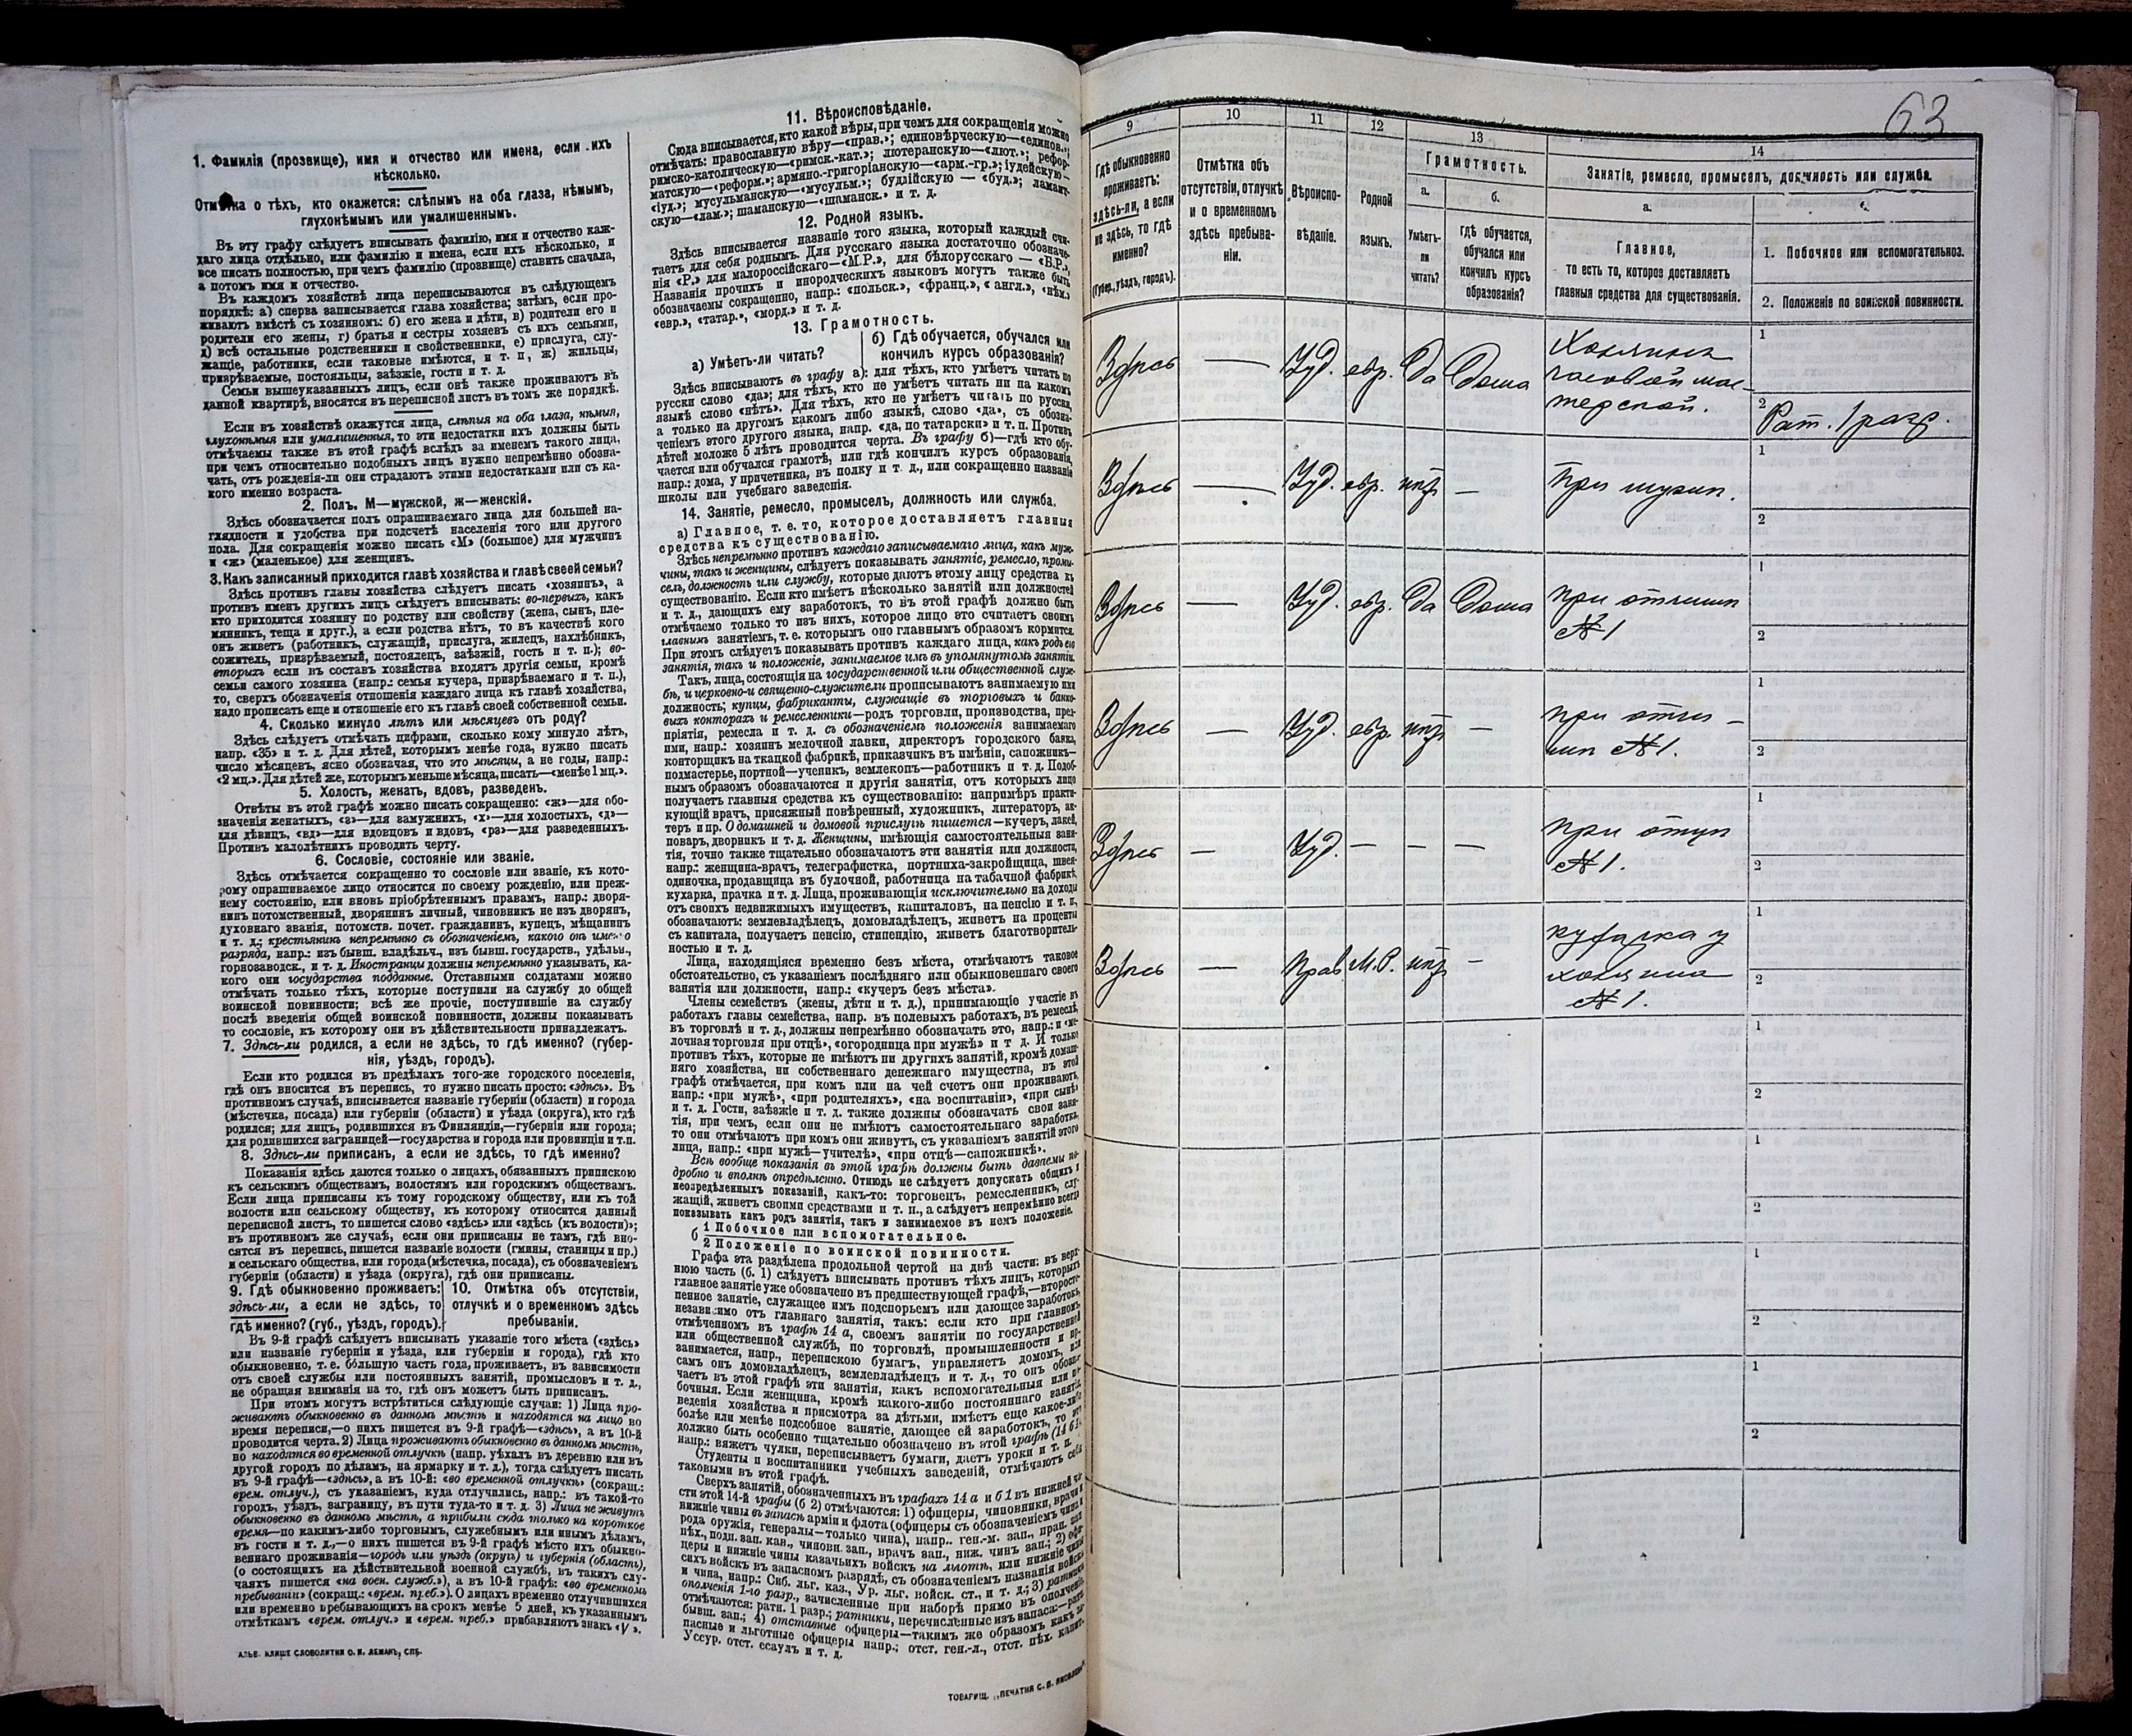 1. Фамилія (прозвище), имя и отчество или имена, если ихъ
нѣсколько.
глухонѣмымъ или умалишеннымъ.
Въ эту графу слѣдуетъ вписывать фамилію, имя и отчество каж-
даго лица отдѣльно, или фамилію и имена, если ихъ нѣсколько, и
все писать полностью, при чемъ фамилію (прозвище) ставить сначала,
а потомъ имя и отчество.
Въ каждомъ хозяйствѣ лица переписываются въ слѣдующемъ
порядкѣ: а) сперва записывается глава хозяйства; затѣмъ, если про-
живаютъ вмѣстѣ съ хозяиномъ: б) его жена и дѣти, в) родители его и
родители его жены, г) братья и сестры хозяевъ съ ихъ семьями,
д) всѣ остальные родственники и свойственники, е) прислуга, слу-
жащіе, работники, если таковые имѣются, и т. п, ж) жильцы,
призрѣваемые, постояльцы, заѣзжіе, гости и т. д.
Семьи вышеуказанныхъ лицъ, если онѣ также проживаютъ въ
данной квартирѣ, вносятся въ переписной листъ въ томъ же порядкѣ.
Если въ хозяйствѣ окажутся лица, слѣпыя на оба глаза, нѣмыя,
глухонѣмыя или умалишенныя, то эти недостатки ихъ должны быть
отмѣчаемы также въ этой графѣ вслѣдъ за именемъ такого лица,
при чемъ относительно подобныхъ лицъ нужно непремѣнно обозна-
чать, отъ рожденія-ли они страдаютъ этими недостатками или съ ка-
кого именно возраста.
2. Полъ. М—мужской, ж—женскій.
Здѣсь обозначается полъ опрашиваемаго лица для большей на-
глядности и удобства при подсчетѣ населенія того или другого
пола. Для сокращенія можно писать «М» (большое) для мужчинъ
и «ж» (маленькое) для женщинъ.
3. Какъ записанный приходится главѣ хозяйства и главѣ своей семьи?
Здѣсь противъ главы хозяйства слѣдуетъ писать «хозяинъ», а
противъ именъ другихъ лицъ слѣдуетъ вписывать: во-первыхъ, какъ
кто приходится хозяину по родству или свойству (жена, сынъ, пле-
мянникъ, теща и друг.), а если родства нѣтъ, то въ качествѣ кого
онъ живетъ (работникъ, служащій, прислуга, жилецъ, нахлѣбникъ,
сожитель, призрѣваемый, постоялецъ, заѣзжій, гость и т. п.); во-
вторыхъ если въ составъ хозяйства входятъ другія семьи, кромѣ
семьи самого хозяина (напр.: семья кучера, призрѣваемаго и т. п.),
то, сверхъ обозначенія отношенія каждаго лица къ главѣ хозяйства,
надо прописать еще и отношеніе его къ главѣ своей собственной семьи.
4. Сколько минуло лѣтъ или мѣсяцевъ отъ роду?
Здѣсь слѣдуетъ отмѣчать цифрами, сколько кому минуло лѣтъ,
напр. «35» и т. д. Для дѣтей, которымъ менѣе года, нужно писать
число мѣсяцевъ, ясно обозначая, что это мѣсяцы, а не годы, напр.:
«2 мц.». Для дѣтей же, которымъ меньше мѣсяца, писать—«менѣе 1 мц.».
5. Холостъ, женатъ, вдовъ, разведенъ.
Отвѣты въ этой графѣ можно писать сокращенно: «ж»—для обо-
значенія женатыхъ, «з»—для замужнихъ, «х»—для холостыхъ, «д»—
для дѣвицъ, «вд»—для вдовцовъ и вдовъ, «рз»—для разведенныхъ.
Противъ малолѣтнихъ проводить черту.
6. Сословіе, состояніе или званіе.
Здѣсь отмѣчается сокращенно то сословіе или званіе, къ кото-
рому опрашиваемое лицо относится по своему рожденію, или преж-
нему состоянію, или вновь пріобрѣтеннымъ правамъ, напр.: дворя-
нинъ потомственный, дворянинъ личный, чиновникъ не изъ дворянъ,
духовнаго званія, потомств. почет. гражданинъ, купецъ, мѣщанинъ
и т. д.; крестьянинъ непремѣнно съ обозначеніемъ, какого онъ именно
разряда, напр.: изъ бывш. владѣльч., изъ бывш. государств., удѣльн.,
горнозаводск., и т. д. Иностранцы должны непремѣнно указывать, ка-
кого они государства подданные. Отставными солдатами можно
отмѣчать только тѣхъ, которые поступили на службу до общей
воинской повинности; всѣ же прочіе, поступившіе на службу
послѣ введенія общей воинской повинности, должны показывать
то сословіе, къ которому они въ дѣйствительности принадлежатъ.
7. Здѣсь-ли родился, а если не здѣсь, то гдѣ именно? (губер-
нія, уѣздъ, городъ).
Если кто родился въ предѣлахъ того-же городского поселенія,
гдѣ онъ вносится въ перепись, то нужно писать просто: «здѣсь». Въ
противномъ случаѣ, вписывается названіе губерніи (области) и города
(мѣстечка, посада) или губерніи (области) и уѣзда (округа), кто гдѣ
родился; для лицъ, родившихся въ Финляндіи,—губерніи или города;
для родившихся заграницей—государства и города или провинціи и т.п.
8. Здѣсь-ли приписанъ, а если не здѣсь, то гдѣ именно?
Показанія здѣсь даются только о лицахъ, обязанныхъ припискою
къ сельскимъ обществамъ, волостямъ или городскимъ обществамъ.
Если лица приписаны къ тому городскому обществу, или къ той
волости или сельскому обществу, къ которому относится данный
переписной листъ, то пишется слово «здѣсь» или «здѣсь (къ волости)»;
въ противномъ же случаѣ, если они приписаны не тамъ, гдѣ вно-
сятся въ перепись, пишется названіе волости (гмины, станицы и пр.)
и сельскаго общества, или города (мѣстечка, посада), съ обозначеніемъ
губерніи (области) и уѣзда (округа), гдѣ они приписаны.
9. Гдѣ обыкновенно проживаетъ:
здѣсь-ли, а если не здѣсь, то
гдѣ именно? (губ., уѣздъ, городъ).
10. Отмѣтка объ отсутствіи,
отлучкѣ и о временномъ здѣсь
пребываніи.
Въ 9-й графѣ слѣдуетъ вписывать указаніе того мѣста («здѣсь»
или названіе губерніи и уѣзда, или губерніи и города), гдѣ кто
обыкновенно, т. е. бо́льшую часть года, проживаетъ, въ зависимости
отъ своей службы или постоянныхъ занятій, промысловъ и т. д.,
не обращая вниманія на то, гдѣ онъ можетъ быть приписанъ.
При этомъ могутъ встрѣтиться слѣдующіе случаи: 1) Лица про-
живаютъ обыкновенно въ данномъ мѣстѣ и находятся на лицо во
время переписи,—о нихъ пишется въ 9-й графѣ—«здѣсь», а въ 10-й
проводится черта. 2) Лица проживаютъ обыкновенно въ данномъ мѣстѣ,
но находятся во временной отлучкѣ (напр. уѣхалъ въ деревню или въ
другой городъ по дѣламъ, на ярмарку и т. д.), тогда слѣдуетъ писать
въ 9-й графѣ—«здѣсь», а въ 10-й: «во временной отлучкѣ» (сокращ.:
врем. отлуч.), съ указаніемъ, куда отлучились, напр.: въ такой-то
городъ, уѣздъ, заграницу, въ пути туда-то и т. д. 3) Лица не живутъ
обыкновенно въ данномъ мѣстѣ, а прибыли сюда только на короткое
время—по какимъ-либо торговымъ, служебнымъ или инымъ дѣламъ,
въ гости и т. д.,—о нихъ пишется въ 9-й графѣ мѣсто ихъ обыкно-
веннаго проживанія—городъ или уѣздъ (округъ) и губернія (область),
(о состоящихъ на дѣйствительной военной службѣ, въ такихъ слу-
чаяхъ пишется «на воен. служб.»), а въ 10-й графѣ: «во временномъ
пребываніи» (сокращ.: «врем. преб.»). О лицахъ временно отлучившихся
или временно пребывающихъ на срокъ менѣе 5 дней, къ указаннымъ
отмѣткамъ «врем. отлуч.» и «врем. преб.» прибавляютъ знакъ «V».
11. Вѣроисповѣданіе.
Сюда вписывается, кто какой вѣры, при чемъ для сокращенія можно
отмѣчать: православную вѣру—«прав.»; единовѣрческую—«единов.»;
римско-католическую—«римск.-кат.»; лютеранскую—«лют.»; рефор-
матскую—«реформ.»; армяно.-григоріанскую—«арм.-гр.»; іудейскую—
«іуд.»; мусульманскую—«мусульм.»; буддійскую — «буд.»; ламаит-
скую—«лам.»; шаманскую—«шаманск.» и т. д.
12. Родной языкъ.
Здѣсь вписывается названіе того языка, который каждый счи-
таетъ для себя роднымъ. Для русскаго языка достаточно обозначе-
нія «Р.» для малороссійскаго—«М.Р.», для бѣлорусскаго — «Б.Р.»,
Названія прочихъ и инородческихъ языковъ могутъ также быть
обозначаемы сокращенно, напр.: «польск.», «франц.», «англ.», «нѣм.»
«евр.», «татар.», «морд.» и т. д.
13. Грамотность.
а) Умѣетъ-ли читать?
б) Гдѣ обучается, обучался или
кончилъ курсъ образованія?
Здѣсь вписываютъ въ графу а): для тѣхъ, кто умѣетъ читать по
русски слово «да»; для тѣхъ, кто не умѣетъ читать ни на какомъ
языкѣ слово «нѣтъ». Для тѣхъ, кто не умѣетъ читать по русски,
а только на другомъ какомъ либо языкѣ, слово «да», съ обозна-
ченіемъ этого другого языка, напр. «да, по татарски» и т. п. Противъ
дѣтей моложе 5 лѣтъ проводится черта. Въ графу б)—гдѣ кто обу-
чается или обучался грамотѣ, или гдѣ кончилъ курсъ образованія,
напр.: дома, у причетника, въ полку и т. д., или сокращенно названіе
школы или учебнаго заведенія.
14. Занятіе, ремесло, промыселъ, должность или служба.
а) Главное, т. е. то, которое доставляетъ главныя
средства къ существованію.
Здѣсь непремѣнно противъ каждаго записываемаго лица, какъ муж-
чины, такъ и женщины, слѣдуетъ показывать занятіе, ремесло, промы-
селъ, должность или службу, которые даютъ этому лицу средства къ
существованію. Если кто имѣетъ нѣсколько занятій или должностей
и т. д., дающихъ ему заработокъ, то въ этой графѣ должно быть
отмѣчаемо только то изъ нихъ, которое лицо это считаетъ своимъ
главнымъ занятіемъ, т. е. которымъ оно главнымъ образомъ кормится.
При этомъ слѣдуетъ показывать противъ каждаго лица, какъ родъ его
занятія, такъ и положеніе, занимаемое имъ въ упомянутомъ занятіи.
Такъ, лица, состоящія на государственной или общественной служ-
бѣ, и церковно-и священно-служители прописываютъ занимаемую ими
должность; купцы, фабриканты, служащіе въ торговыхъ и банко-
выхъ конторахъ и ремесленники—родъ торговли, производства, пред-
пріятія, ремесла и т. д. съ обозначеніемъ положенія занимаемаго
ими, напр.: хозяинъ мелочной лавки, директоръ городского банка,
конторщикъ на ткацкой фабрикѣ, приказчикъ въ имѣніи, сапожникъ—
подмастерье, портной—ученикъ, землекопъ—работникъ и т. д. Подоб-
нымъ образомъ обозначаются и другія занятія, отъ которыхъ лицо
получаетъ главныя средства къ существованію: напримѣръ практи-
кующій врачъ, присяжный повѣренный, художникъ, литераторъ, ак-
теръ и пр. О домашней и домовой прислугѣ пишется—кучеръ, лакей,
поваръ, дворникъ и т. д. Женщины, имѣющія самостоятельныя заня-
тія, точно также тщательно обозначаютъ эти занятія или должности,
напр.: женщина-врачъ, телеграфистка, портниха-закройщица, швея-
одиночка, продавщица въ булочной, работница на табачной фабрикѣ,
кухарка, прачка и т. д. Лица, проживающія исключительно на доходы
отъ своихъ недвижимыхъ имуществъ, капиталовъ, на пенсію и т. п.,
обозначаютъ: землевладѣлецъ, домовладѣлецъ, живетъ на проценты
съ капитала, получаетъ пенсію, стипендію, живетъ благотворитель-
ностью и т. д.
Лица, находящіяся временно безъ мѣста, отмѣчаютъ таковое
обстоятельство, съ указаніемъ послѣдняго или обыкновеннаго своего
занятія или должности, напр.: «кучеръ безъ мѣста».
Члены семействъ (жены, дѣти и т. д.), принимающіе участіе въ
работахъ главы семейства, напр. въ полевыхъ работахъ, въ ремеслѣ,
въ торговлѣ и т. д., должны непремѣнно обозначать это, напр.: и «ме-
лочная торговля при отцѣ», «огородница при мужѣ» и т д. И только
противъ тѣхъ, которые не имѣютъ ни другихъ занятій, кромѣ домаш-
няго хозяйства, ни собственнаго денежнаго имущества, въ этой
графѣ отмѣчается, при комъ или на чей счетъ они проживаютъ,
напр.: «при мужѣ», «при родителяхъ», «на воспитаніи», «при сынѣ»
и т. д. Гости, заѣзжіе и т. д. также должны обозначать свои заня-
тія, при чемъ, если они не имѣютъ самостоятельнаго заработка,
то они отмѣчаютъ при комъ они живутъ, съ указаніемъ занятій этого
лица, напр.: «при мужѣ—учителѣ», «при отцѣ—сапожникѣ».
Всѣ вообще показанія въ этой графѣ должны быть даваемы по-
дробно и вполнѣ опредѣленно. Отнюдь не слѣдуетъ допускать общихъ и
неопредѣленныхъ показаній, какъ-то: торговецъ, ремесленникъ, слу-
жащій, живетъ своими средствами и т. п., а слѣдуетъ непремѣнно всегда
показывать какъ родъ занятія, такъ и занимаемое въ немъ положеніе.
б 1 Побочное или вспомогательное.
2 Положеніе по воинской повинности.
Графа эта раздѣлена продольной чертой на двѣ части: въ верх-
нюю часть (б. 1) слѣдуетъ вписывать противъ тѣхъ лицъ, которыхъ
главное занятіе уже обозначено въ предшествующей графѣ,—второсте-
пенное занятіе, служащее имъ подспорьемъ или дающее заработокъ,
независимо отъ главнаго занятія, такъ: если кто при главномъ,
отмѣченномъ въ графѣ 14 а, своемъ занятіи по государственной
или общественной службѣ, по торговлѣ, промышленности и пр.,
занимается, напр., перепискою бумагъ, управляетъ домомъ, или
самъ онъ домовладѣлецъ, землевладѣлецъ и т. д., то онъ обозна-
чаетъ въ этой графѣ эти занятія, какъ вспомогательныя или по-
бочныя. Если женщина, кромѣ какого-либо постояннаго занятія,
веденія хозяйства и присмотра за дѣтьми, имѣетъ еще какое-либо
болѣе или менѣе подсобное занятіе, дающее ей заработокъ, то это
должно быть особенно тщательно обозначено въ этой графѣ (14 б 1),
напр.: вяжетъ чулки, переписываетъ бумаги, даетъ уроки и т. п.
Студенты и воспитанники учебныхъ заведеній, отмѣчаютъ себя
таковыми въ этой графѣ.
Сверхъ занятій, обозначенныхъ въ графахъ 14 а и б 1 въ нижней ча-
сти этой 14-й графы (б 2) отмѣчаются: 1) офицеры, чиновники, врачи и
нижніе чины въ запасѣ арміи и флота (офицеры съ обозначеніемъ чина и
рода оружія, генералы—только чина), напр.. ген.-м. зап., прап. зап.
пѣх., подп. зап. кав., чиновн. зап., врачъ зап., ниж. чинъ зап.; 2) офи-
церы и нижніе чины казачьихъ войскъ на льготѣ, или нижніе чины
сихъ войскъ въ запасномъ разрядѣ, съ обозначеніемъ названія войска
и чина, напр.: Сиб. льг. каз., Ур. льг. войск. ст., и т. д.; 3) ратники
ополченія 1-го разр., зачисленные при наборѣ прямо въ ополченіе,
отмѣчаются: ратн. 1 разр.; ратники, перечисленные изъ запаса:—ратн.
бывш. зап.; 4) отставные офицеры—такимъ же образомъ какъ за-
пасные и льготные офицеры напр.; отст. ген.-л., отст. пѣх. капит.
Уссур. отст. есаулъ и т. д.
АЛЬБ. КЛИШЕ СЛОВОЛИТНИ О. И. ЛЕМАНЪ, СПБ.
ТОВАРИЩ. „ПЕЧАТНЯ С. П. ЯКОВЛЕВА“
63
9
10
11
12
13
14
Гдѣ обыкновенно
проживаетъ:
здѣсь-ли, а если
не здѣсь, то гдѣ
именно?
(губер., уѣздъ, городъ).
Отмѣтка объ
отсутствіи, отлучкѣ
и о временномъ
здѣсь пребыва-
ніи.
Вѣроиспо-
вѣданіе.
Родной
языкъ.
Грамотность.
а.
Умѣетъ-
ли
читать?
б.
гдѣ обучается,
обучался или
кончилъ курсъ
образованія?
Занятіе, ремесло, промыселъ, должность или служба.
а.
Главное,
то есть то, которое доставляетъ
главныя средства для существованія.
1. Побочное или вспомогательное.
2. Положеніе по воинской повинности.
Здѣсь — Іуд. евр. Да Дома Хозяинъ 1
часовой мас-
терской. 2 Рат. 1 разр.
Здѣсь — Іуд. евр. нѣт — При мужѣ. 1
2
Здѣсь — Іуд. евр. Да Дома при отцѣ 1
№ 1 2
Здѣсь — Іуд. евр. нѣт — при 1
№ 1. 2
Здѣсь — Іуд. — — — при отцѣ 1
№ 1. 2
Здѣсь — Прав М.Р. нѣт — кухарка у 1
хозяина 2
№ 1.
1
2
1
2
1
2
1
2